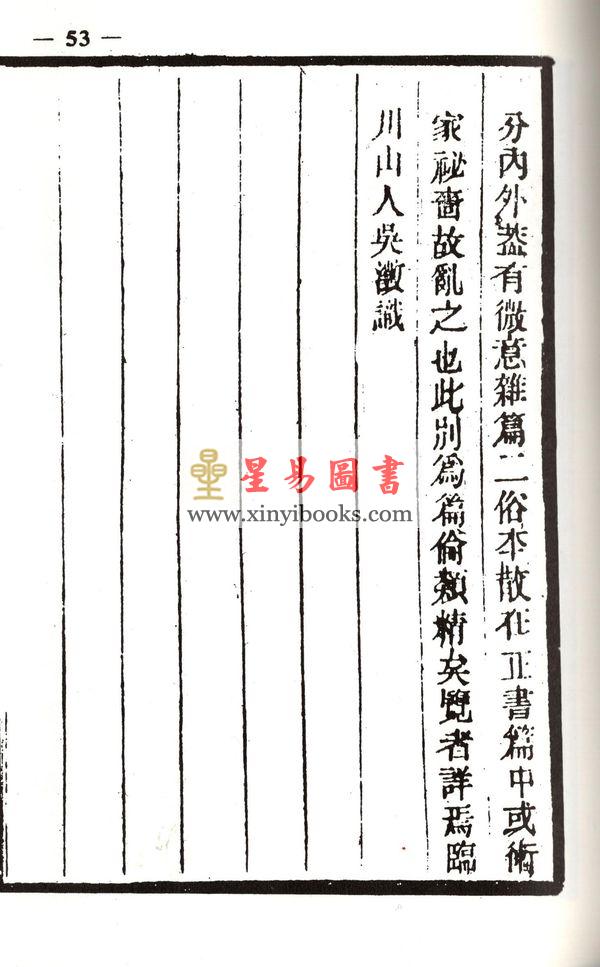 — 53 —
分內外葢有微意雜篇二俗本散在正書篇中或術
家祕嗇故亂之也此別為篇倫類精矣覽者詳焉臨
川山人吳澂識
星易圖書
www.xinyibooks.com